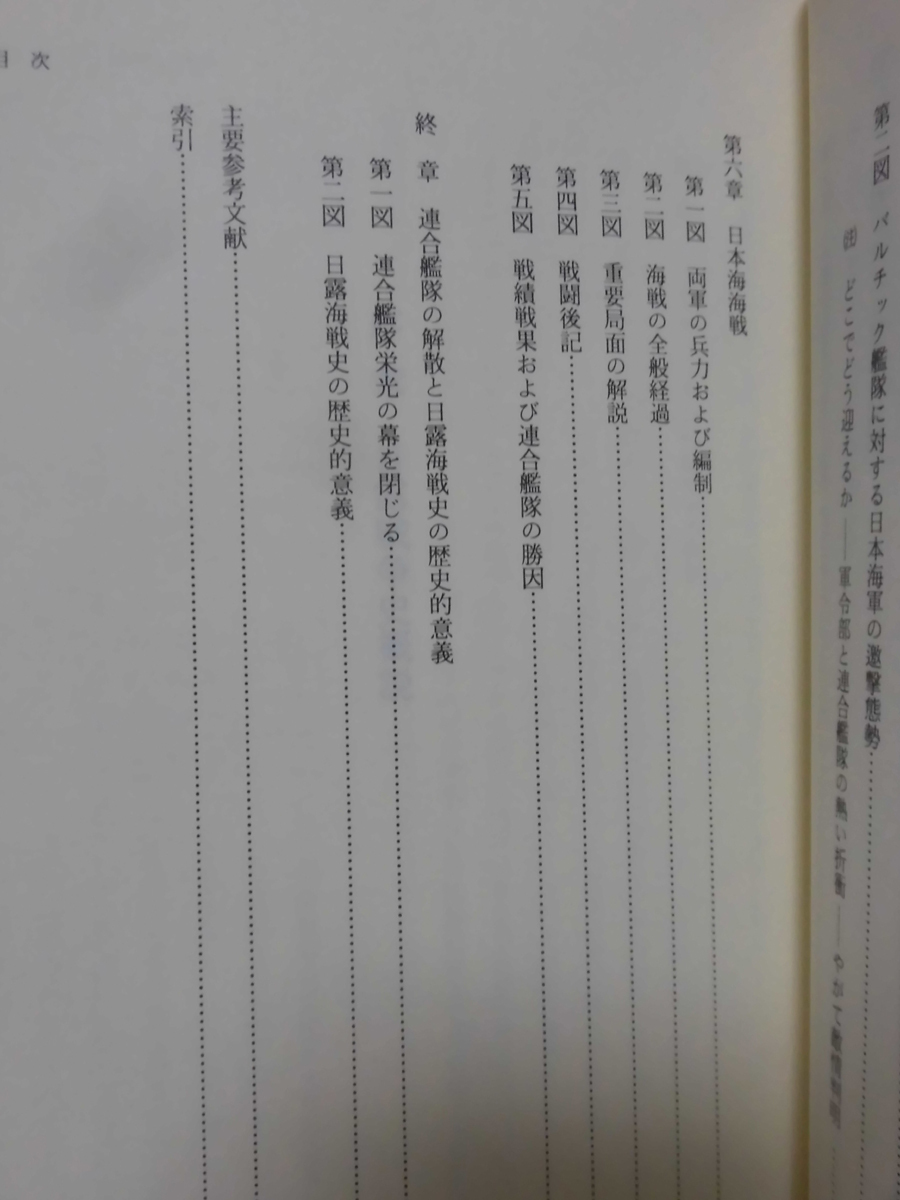 第二図 バルチック艦隊に対する日本海軍の邀撃態勢
㈣ どこでどう迎えるか――軍令部と連合艦隊の熱い折衝――やがて敵情判明
第六章 日本海海戦
第一図 両軍の兵力および編制
第二図 海戦の全般経過
第三図 重要局面の解説
第四図 戦闘後記
第五図 戦績戦果および連合艦隊の勝因
終章 連合艦隊の解散と日露海戦史の歴史的意義
第一図 連合艦隊栄光の幕を閉じる
第二図 日露海戦史の歴史的意義
主要参考文献
索引
目次